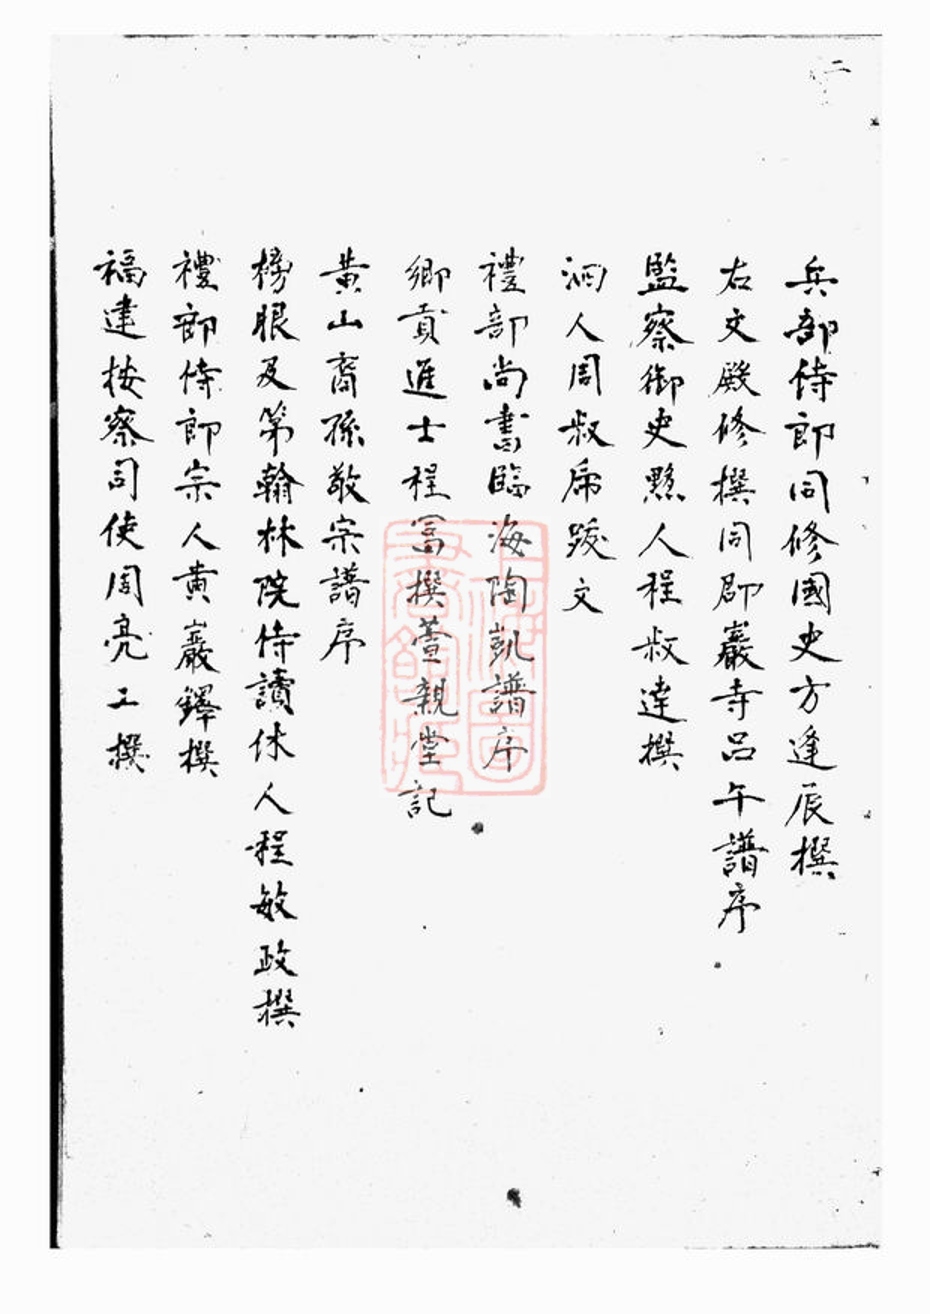 二
兵部侍郎同修國史方逢辰撰
右文殿修撰同郡巖寺呂午譜序
監察御史黟人程叔達撰
泗人周叔虎跋文
禮部尚書臨海陶凱譜序
鄉貢進士程富撰萱親堂記
黃山裔孫敬宗譜序
榜眼及第翰林院侍讀休人程敏政撰
禮部侍郎宗人黃巖鐸撰
福建按察司使周亮工撰
上海圖書館藏